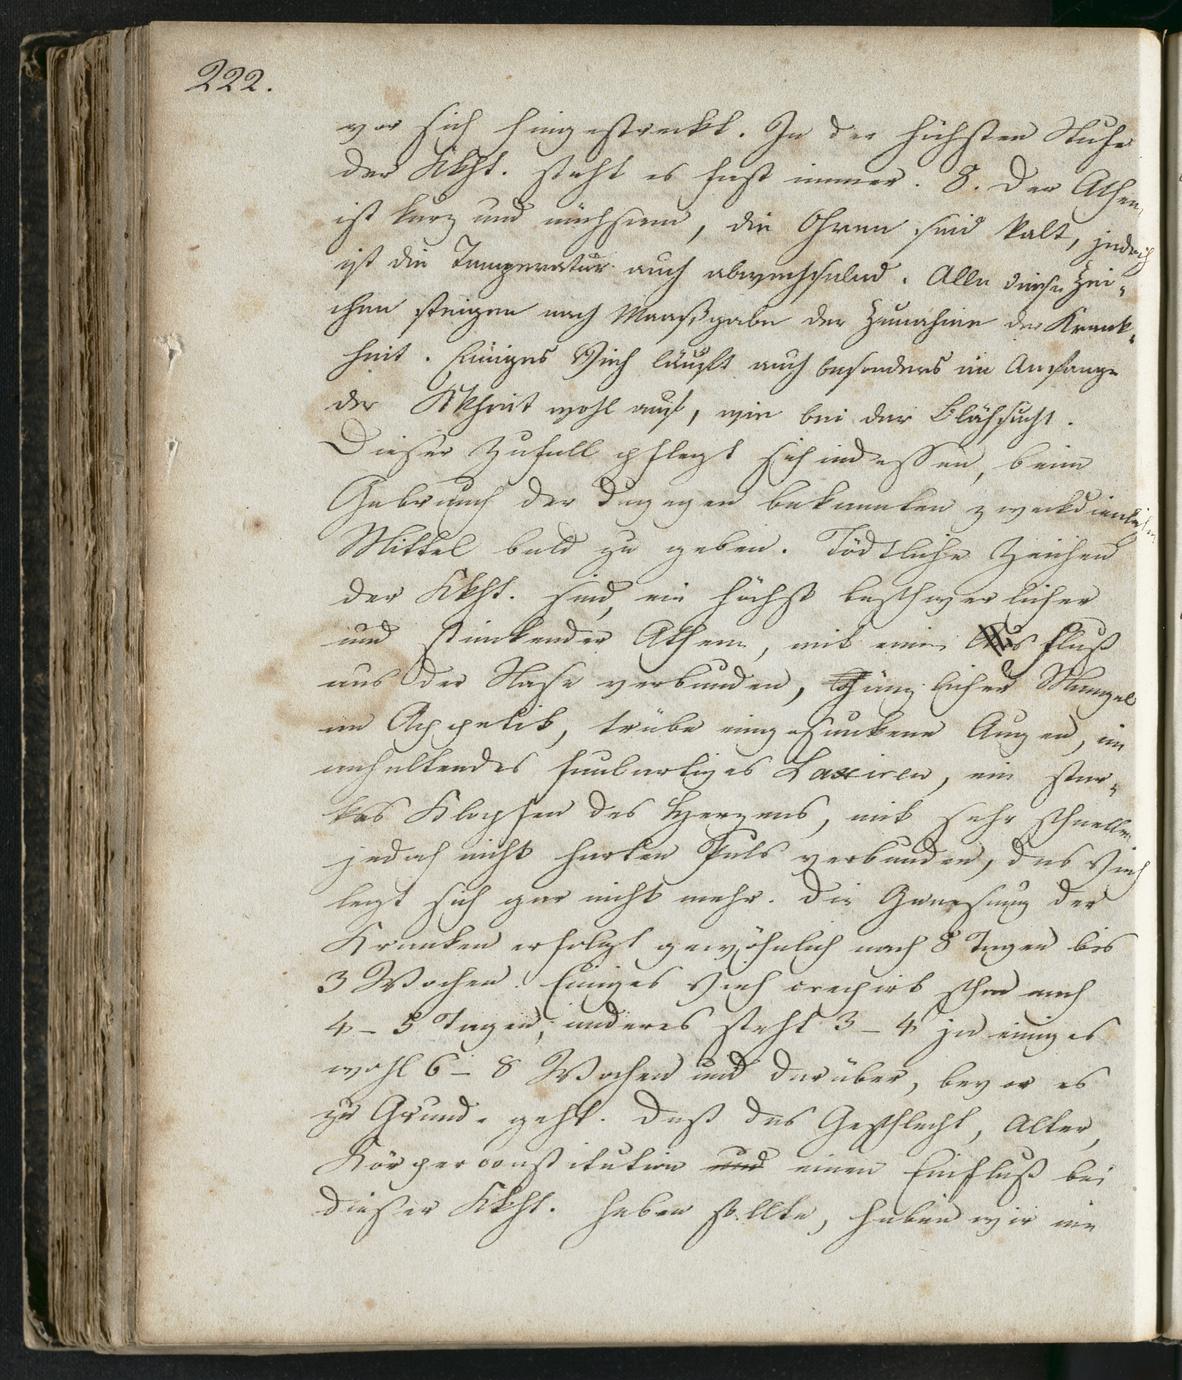 222.
vor sich hingestreckt. In der höchsten Stufe
der Kkht. steht es fast immer. 8. Der Athem
ist kurz und mühsam, die Ohren sind kalt, jedoch
ist die Temperatur auch abwechselnd. Alle diese Zei-
chen steigen nach Maaßgabe der Zunahme der Krank-
heit. Einiges Vieh läuft auch besonders im Anfange
der Kkheit wohl auf, wie bei der Blähsucht.
Dieser Zufall pflegt sich indessen, beim
Gebrauch der dagegen bekannten zweckdienlichen
Mittel bald zu geben. Tödtliche Zeichen
der Kkht. sind, ein höchst beschwerlicher
und stinkender Athem, mit einem Ausfluß
aus der Nase verbunden, gänzlicher Mangel
an Appetit, trübe eingesunkene Augen, ein
anhaltendes faulartiges Laxiren, ein star-
kes Klopfen des Herzens, mit sehr schnellen
jedoch nicht harten Puls verbunden, das Vieh
legt sich gar nicht mehr. Die Genesung der
Kranken erfolgt gewöhnlich nach 8 Tagen bis
3 Wochen. Einiges Vieh crepirt schon nach
4 – 5 Tagen, anderes steht 3 – 4 ja einiges
wohl 6 – 8 Wochen und darüber, bevor es
zu Grunde geht. Daß das Geschlecht, Alter,
Körperconstitution und einen Einfluß bei
dieser Kkht. haben sollte, haben wir nie